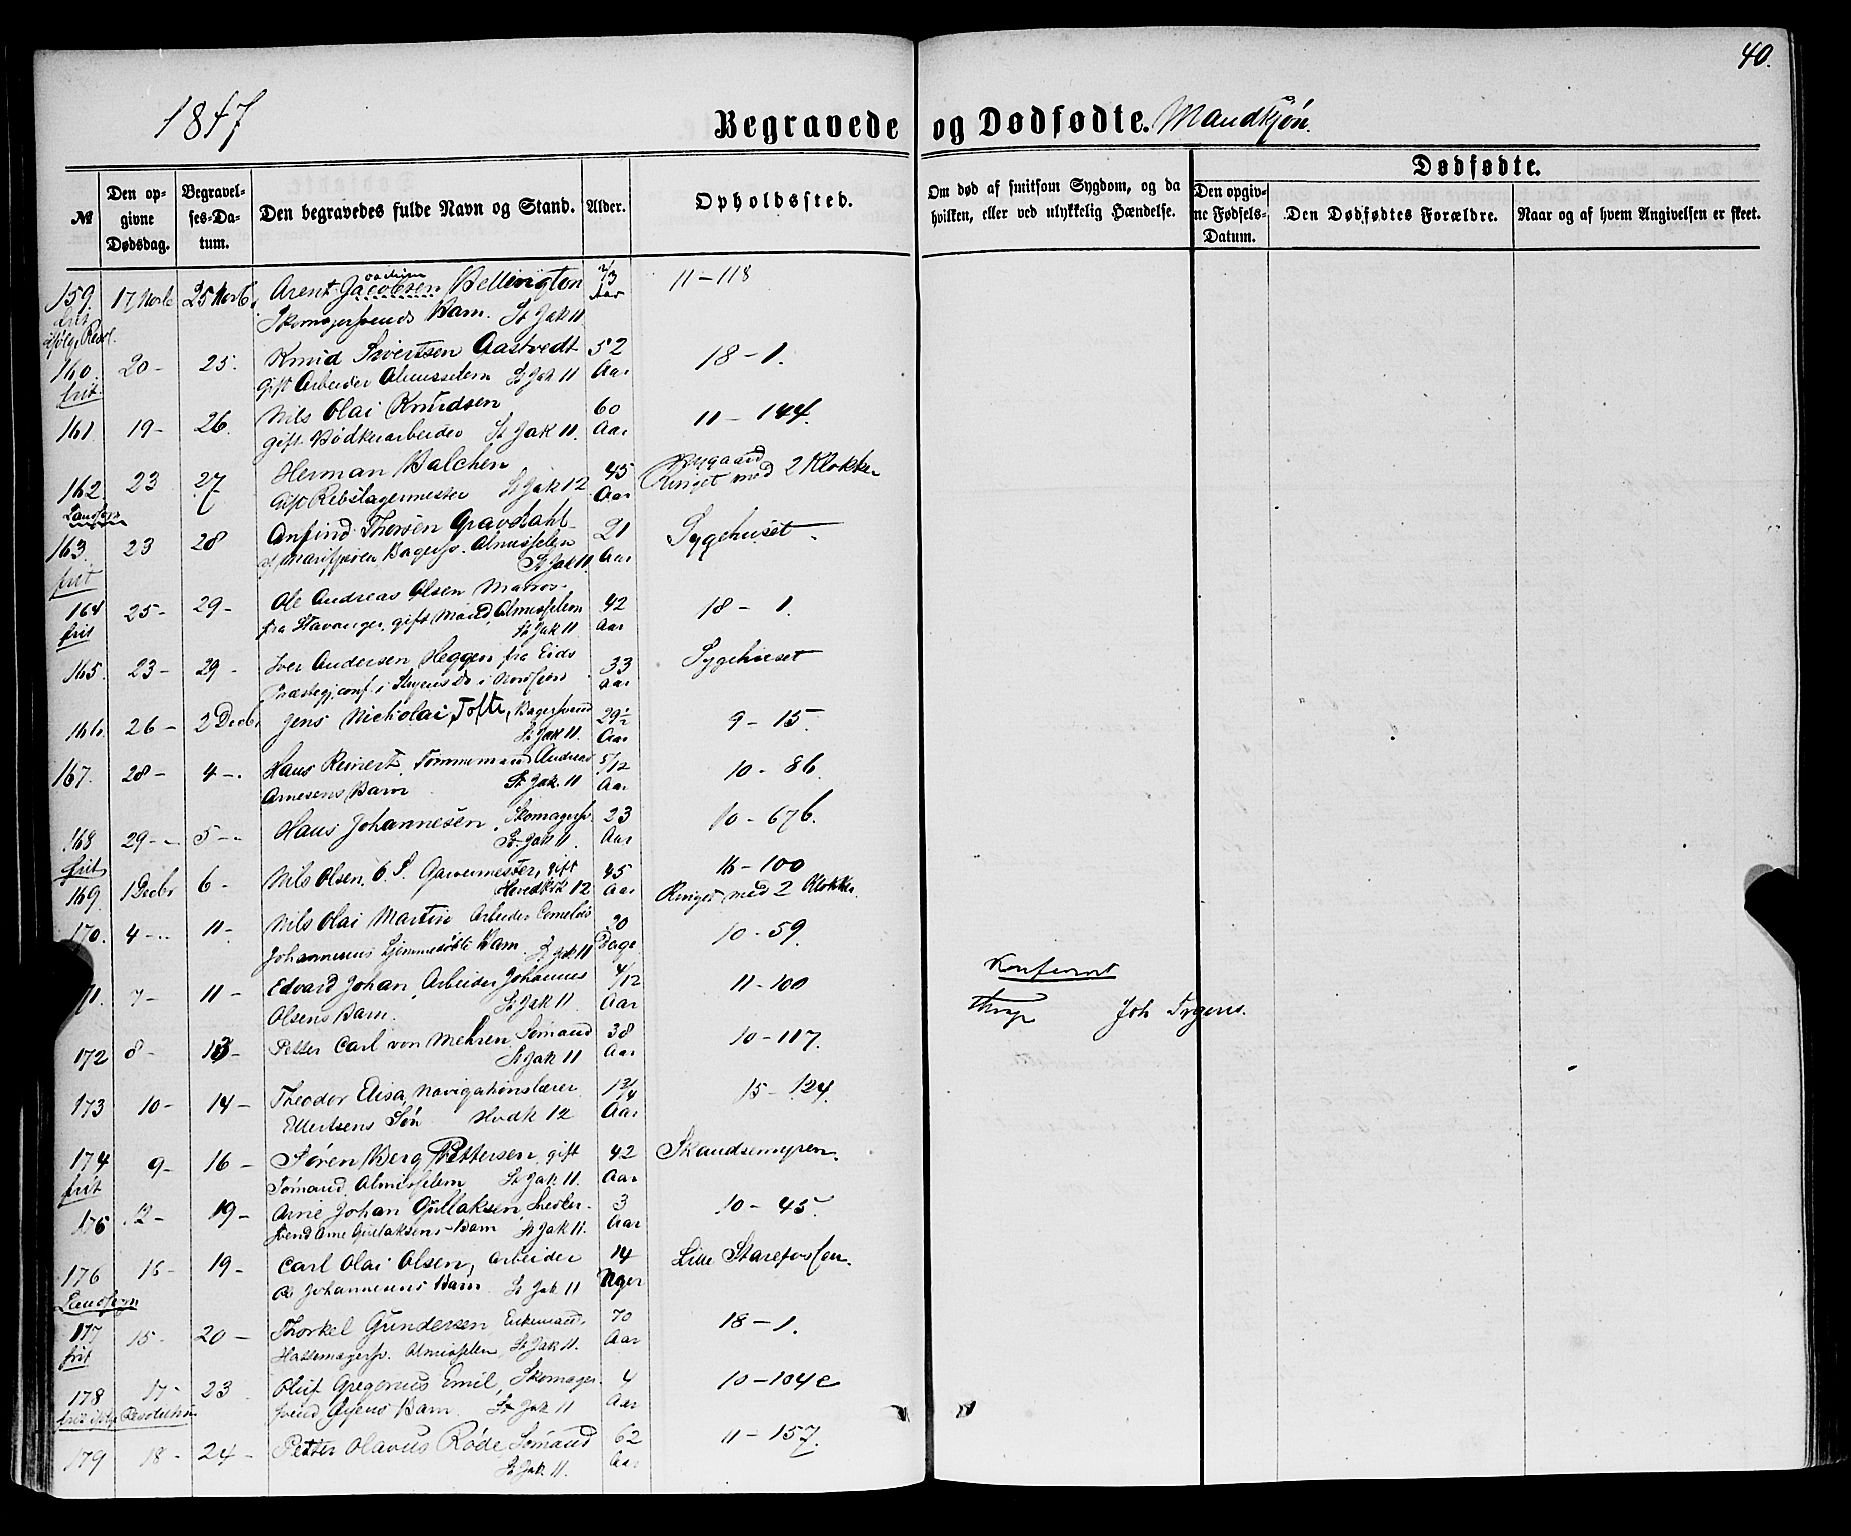 40.
1847
Begravede og Dødfødte. Mandkjøn.
№
Den opgivne Dødsdag.
Begravelses-Datum.
Den begravedes fulde Navn og Stand.
Alder.
Opholdssted.
Om død af smitsom Sygdom, og da hvilken, eller ved ulykkelig Hændelse.
Dødfødte.
Den opgivne Fødsels-Datum.
Den Dødfødtes Forældre.
Naar og af hvem Angivelsen er skeet.
159. 17 Novbr 25 Novbr Arent Jacobsen Hellwigton 2/3 Aar 11-118
Joachim
Skomagersvends Barn. St Jak 11
frit ifølge Resol.
160. 20- 25. Knud Sivertsen Aastvedt 52 Aar 18-1.
frit. Gift Arbeider Almisselem St Jak 11
161 19- 26. Nils Olai Knudsen 60 Aar 11-144.
gift Bødkerarbeider St Jak 11.
162. 23 27 Herman Balchen 45 Aar Nygaard
gift Rebslagermester St Jak 12 Ringet med 2 Klokker
Landsogn
163. 23 28 Anfind Thorsen Gravdahl 21 Aar Sygehuset
frit Bagersv. Almisselem
St Jak 11.
164 25- 29- Ole Andreas Olsen Matros 42 Aar 18-1.
frit fra Stavanger, gift Mand, Almisselem
St Jak 11.
165. 23- 29- Iver Andersen Heggen fra Eids 33 Aar Sygehuset
Præstegj. conf. i
166. 26- 2 Decbr Jens Nicholai Tofte, Bagersvend 29½ Aar 9-15.
St Jak 11.
167. 28- 4-. Hans Reinert, Tømmermand Andreas 5/12 Aar 10-86.
Arnesens Barn St Jak. 11
168 29- 5- Hans Johannesen, Skomagersv. 23 Aar 10-676.
frit St Jak 11.
169. 1 Decbr 6- Nils Olsen. Garvermester, gift 45 Aar 16-100
12 Ringet med 2 Klokker.
170. 4- 11- Nils Olai Martin Arbeider Cornelius 20 Dage 10-59.
Johannesens hjemmedøbte Barn St Jak 11
71. 7- 11- Edvard Johan, Arbeider Johannes 4/12 Aar 11-100
Olsens Barn. St Jak 11.
Konfereret
Joh
172 8- 13- Petter Carl von Mehren, Sømand 38 Aar 10-117.
St Jak 11
173 10- 14- Theodor Elisa, Navigationslærer 1 3/4 Aar 15-124.
Ellertsens Søn Hvdk 12
174 9- 16- Søren Berg Pettersen, gift 42 Aar Skandsemyren.
frit Sømand, Almisselem St Jak 11.
175 12- 19- Arne Johan Gullaksen, Snedker- 3 Aar 10-45.
svend Arne Gullaksens Barn St Jak 11.
176 15- 19- Carl Olai Olsen, Arbeider 14 Uger Lille Starefossen.
Ole Johannesens Barn St Jak 11
Landsogn
177 15- 20- Thorkel Gundersen, Enkemand, 70 Aar 18-1.
frit Hattemagersv. Almisselem, St Jak 11.
178 17- 23 Oluf Gregorius Emil, Skomager- 4 Aar 10-104c
frit ifølge Resolution svend Barn St Jak 11
179 18- 24- Petter Olavus Røde, Sømand 62 Aar 11-157.
St Jak 11.